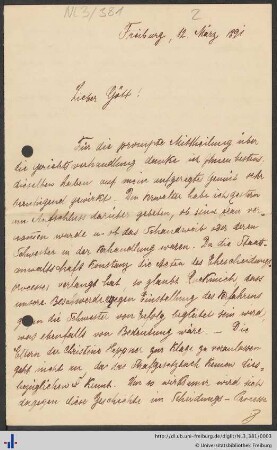 NL 3/381
2
Freiburg, 12. März 1891
Lieber Gött!
Für die prompte Mittheilung über
die Gerichtsverhandlung danke ich Ihnen bestens
dieselben haben auf mein aufgeregtes Gemüt sehr
beruhigend gewirkt. Den Anwalt habe ich gestern
um Aufschluss darüber gebeten, ob
wurde u. ob das deren
Schwester in der Verhandlung waren. Da die Staats-
anwaltschaft Konstanz die Akten des Ehescheidungs-
processes verlangt hat, so glaubt dass
unsere Beschwerde gegen Einstellung des Verfahrens
gegen die Schwester von Erfolg begleitet sein wird,
was ebenfalls von Bedeutung wäre. – Die
Eltern der Christine zur Klage zu veranlassen
geht nicht an, da das Strafgesetzbuch keinen dies-
bezüglichen § kennt. Um so wird sich
dagegen diese Geschichte im Scheidungs-Prozess
http://dl.ub.uni-freiburg.de/diglit/NL3_381/0003
© Universitätsbibliothek Freiburg